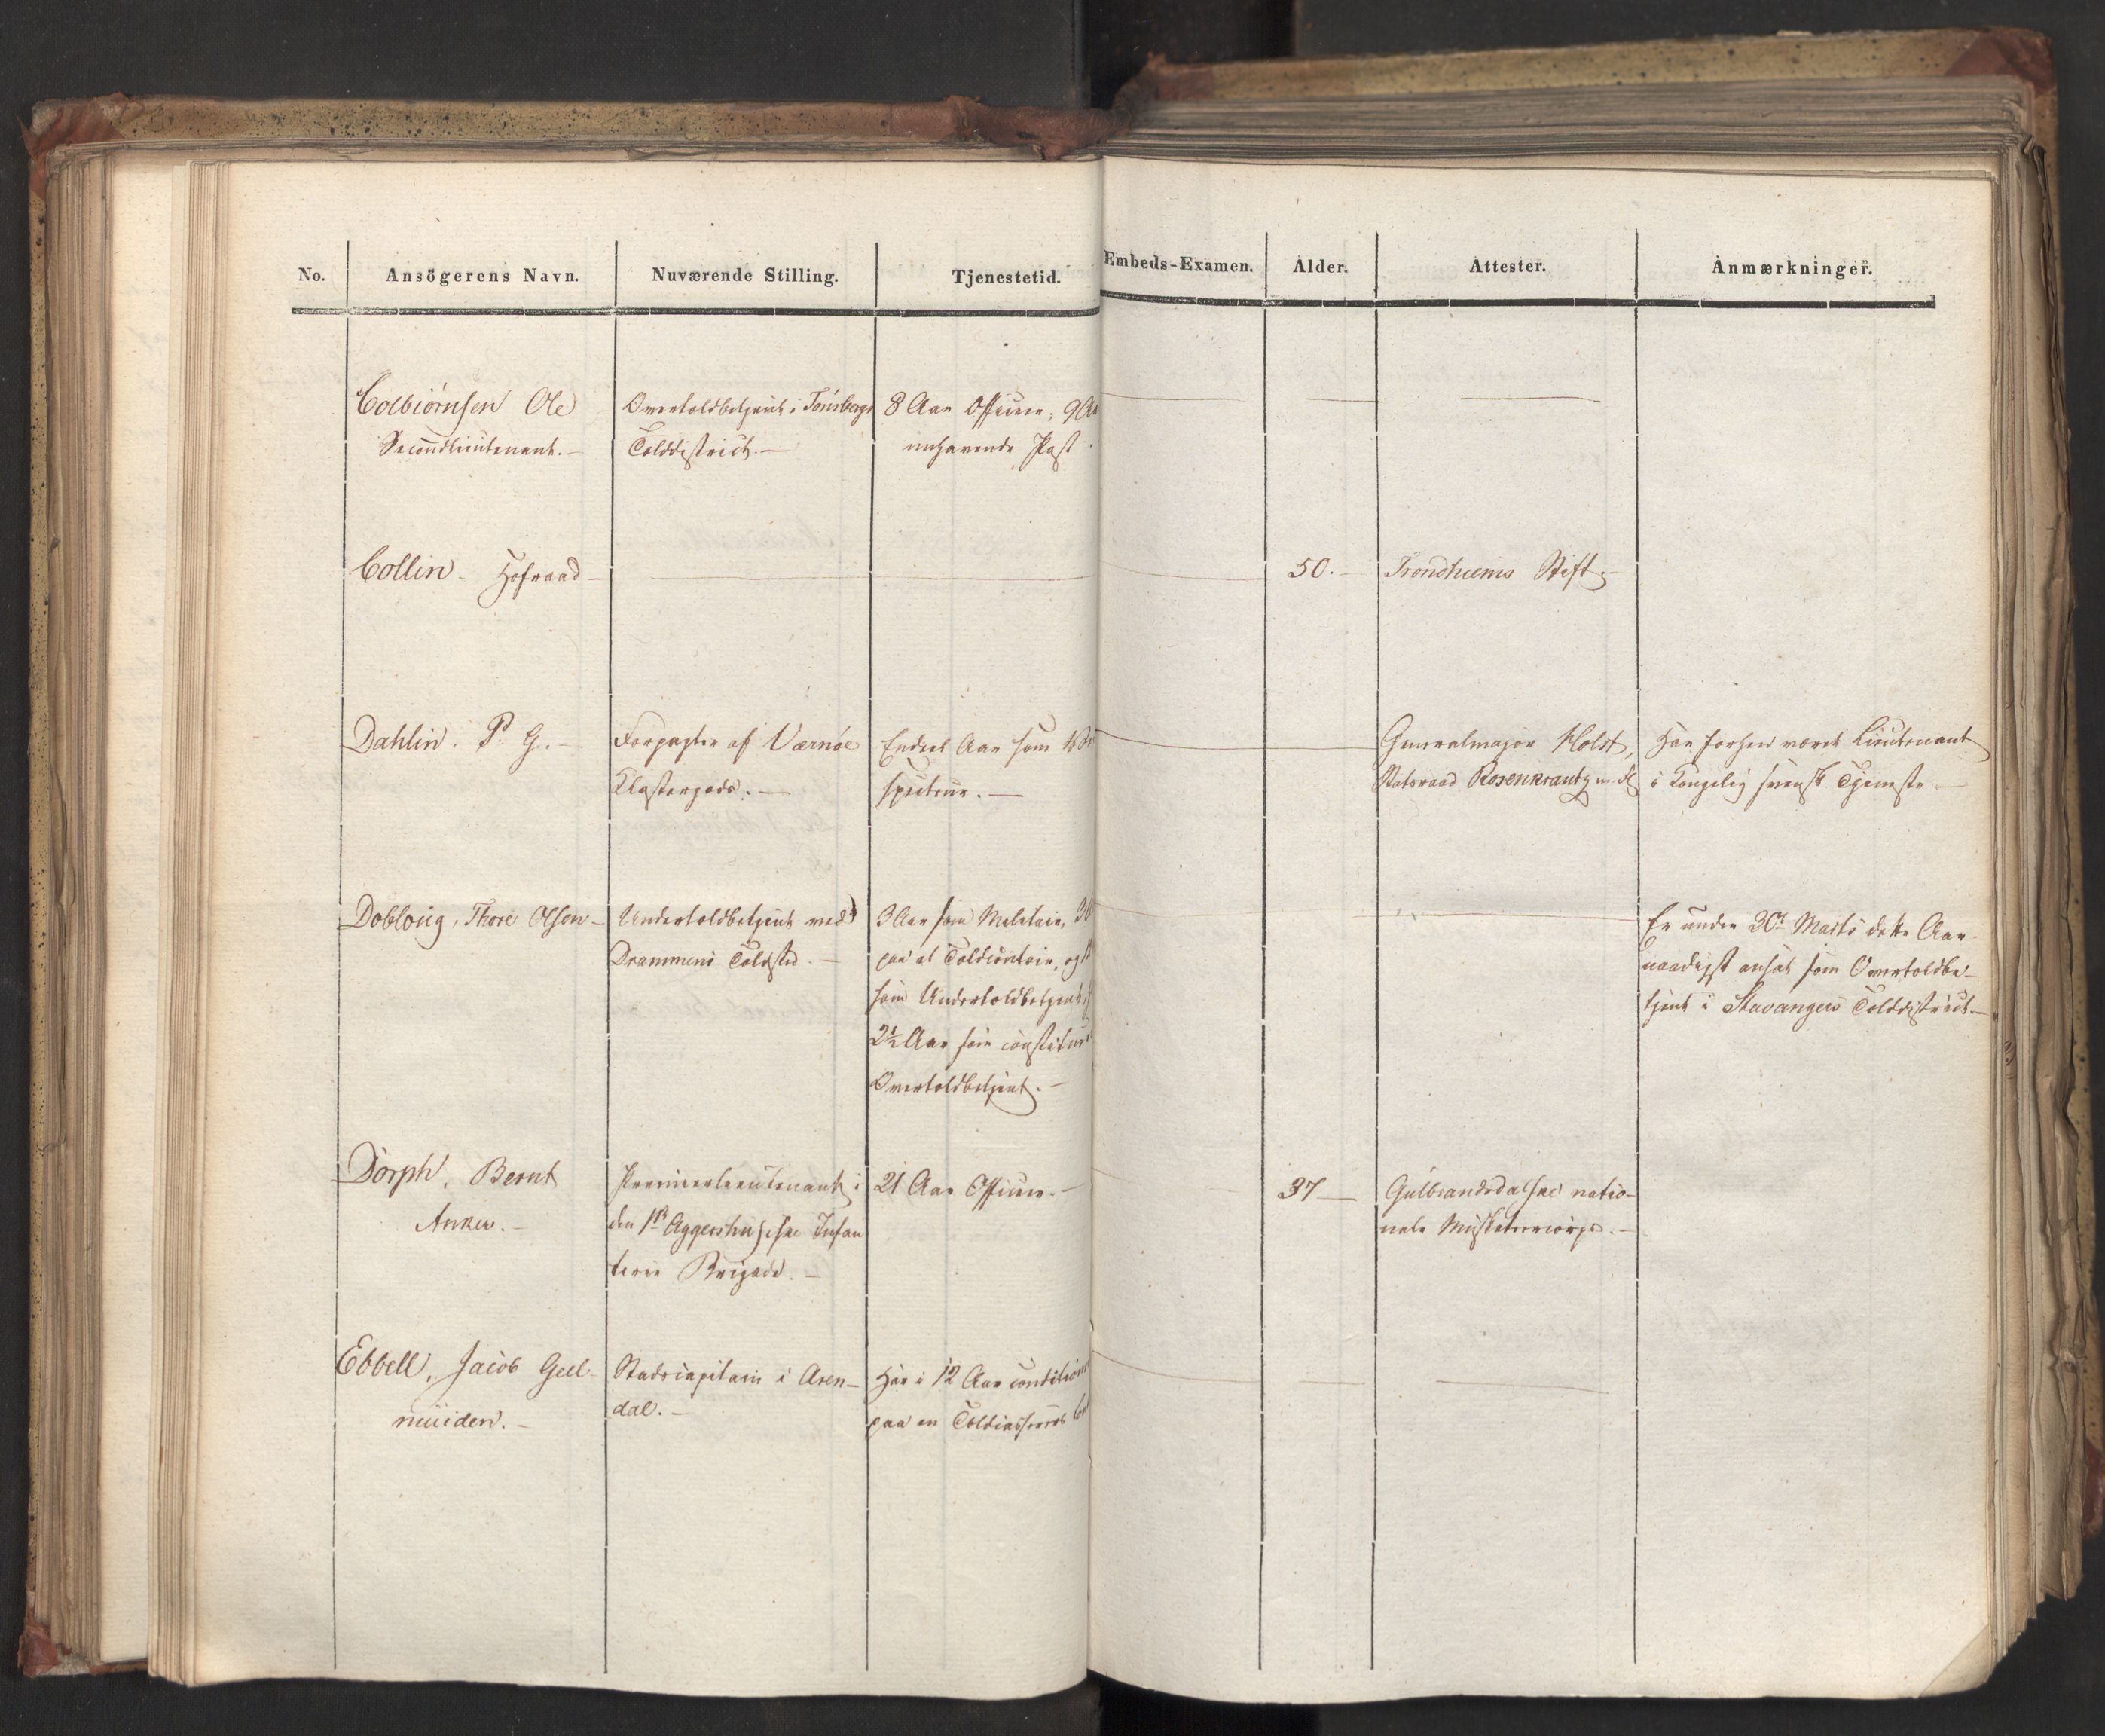 No. Ansögerens Navn. Nuværende Stilling. Tjenestetid. Embeds-Examen. Alder. Attester. Anmærkninger.
Colbiörnsen Ole
Secondlieutenant. –
Overtoldbetjent i Tönsbergs
Tolddistrict. –
8 Aar Officeer, 9 Aa
innhavende Post
Collin – Hofraad –
50. –
Trondhiems Stift. –
Dahlin. P. G. –
Forpagter af Værnöe
Klostergods. –
Endeel Aar som
specteur. –
Generalmajor Holst,
Statsraad Rosenkrantz m. fl.
Har forhen været Lieutenant
i Kongelig svensk Tjeneste –
Dobloug, Thore Olsen –
Undertoldbetjent ved
Drammens Toldsted. –
3 Aar som Militair, 3
paa et Toldcontoir, og
som Undertoldbetjent,
2½ Aar som constitue
Overtoldbetjent. –
Er under 30t Marts dette Aar
naadigst ansat som Overtoldbe-
tjent i Stavangers Tolddistrict. –
Dorph, Bernt
Anker. –
Premierlieutenant i
den 1ste Aggershusiske Infan
terie Brigade. –
21 Aar Officeer. –
37 –
Gulbrandsdalske natio-
nale Musketeercorps. –
Ebbell, Jacob Geel-
muiden. –
Stadscapitain i Aren-
dal. –
Har i 12 Aar conditione
paa en Toldcasserers